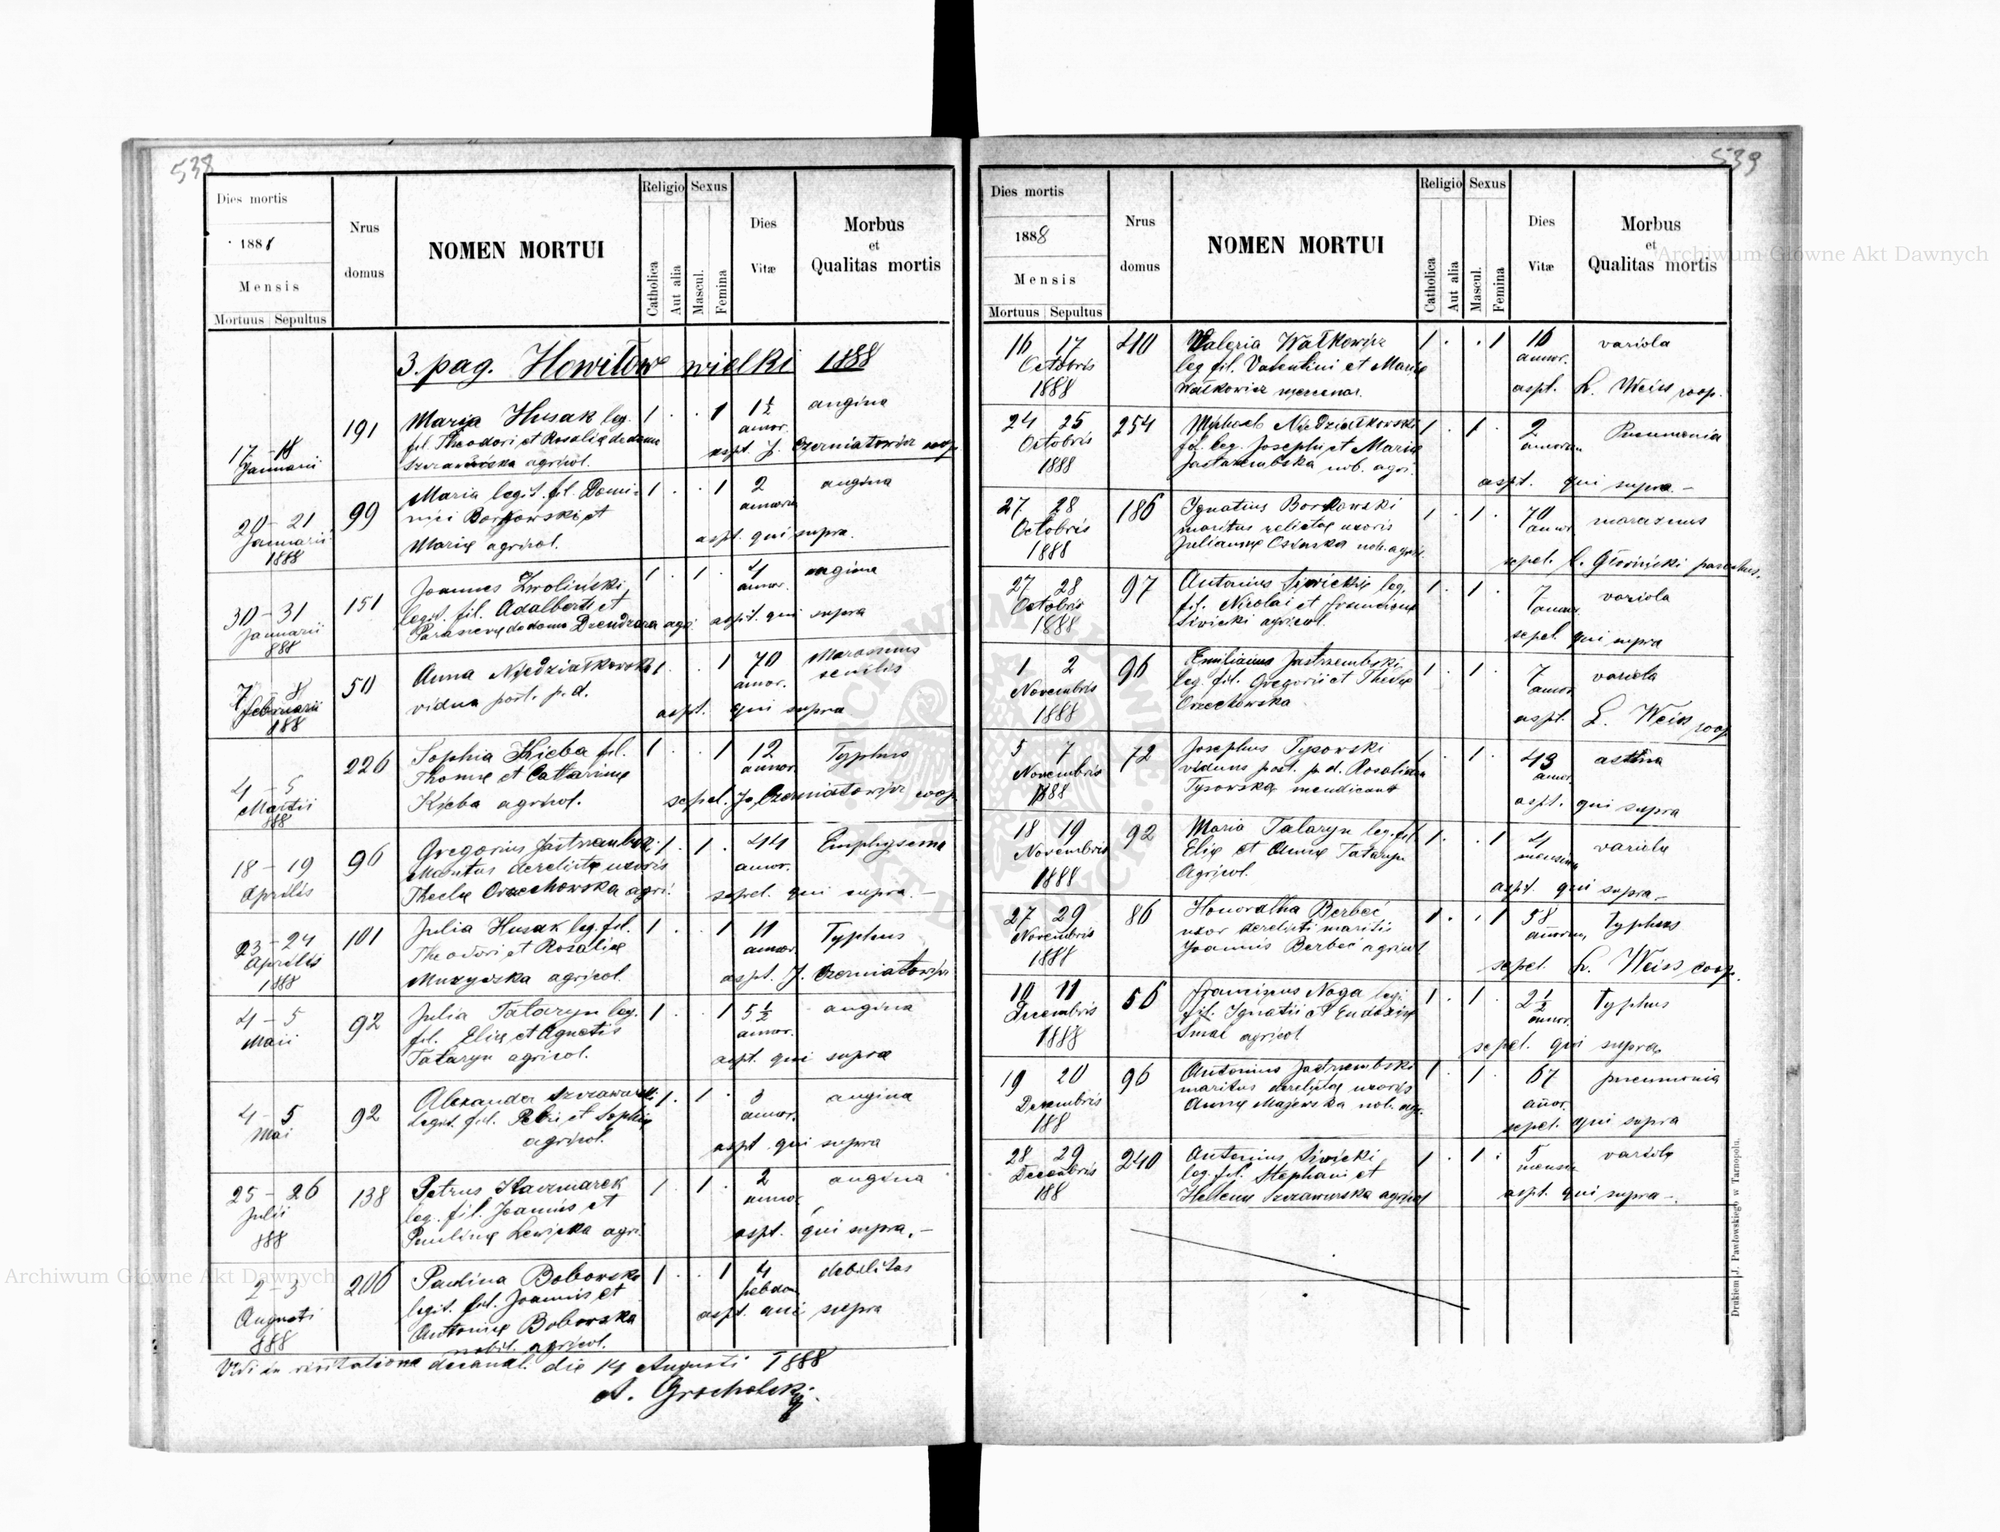 538
Dies mortis
1888
Mensis
Mortuus Sepultus
Nrus domus
NOMEN MORTUI
Religio
Catholica
Aut alia
Sexus
Mascul.
Femina
Dies Vitæ
Morbus et Qualitas mortis
3. pag. Howiłow wielki 1888
17 - 18 Januarii
191
Maria Husak leg.
fil. Theodori et Rosaliæ de domo
agricol.
1 . . 1
1½ annor.
angina
aspt. J. Czerniatowicz coop.
20 - 21 Januarii 1888
99
Maria legit. fil. Domi-
nici Borkowski et
Mariæ agricol.
1 . . 1
2 annorum
angina
aspt. qui supra.
30 - 31 Januarii 888
151
Joannes Zwoliński,
legit. fil. Adalberti et
Parascevæ de domo agr.
1 . 1 .
4 annor.
angina
aspt. qui supra
7 8 februarii 888
50
Anna Niedziałkowska
vidua post. p. d.
1 . . 1
70 annor.
Marassmus senilis
aspt. qui supra
4 - 5 Martii 888
226
Sophia Kieba fil.
Thomæ et Catharinæ
Kieba agricol.
1 . . 1
12 annor.
Typhus
sepel. Jo. Czerniatowicz coop.
18 - 19 Aprilis
96
Gregorius Jastrzembski
Maritus derelictæ uxoris
Theclæ Orzechowska agri.
1 . 1 .
44 annor.
Emphysema
sepel. qui supra. -
23 - 24 Aprilis 1888
101
Julia Husak leg. fil.
Theodori et Rosaliæ
Muzyczka agricol.
1 . . 1
11 annor.
Typhus
aspt. J. Czerniatowicz
4 - 5 Maii
92
Julia Tataryn leg.
fil. Eliæ et Agnetis
Tataryn agricol.
1 . . 1
5½ annor.
angina
aspt. qui supra
4 - 5 Mai
92
Alexander
Legit. fil. Petri et Sophiæ
agricol.
1 . 1 .
3 annor.
angina
aspt. qui supra
25 - 26 Julii 888
138
Petrus Kaczmarek
leg. fil. Joannis et
Paulinæ Lewicka agri.
1 . 1 .
2 annor.
angina
aspt. qui supra. -
2 - 3 Augusti 888
206
Paulina Boborska
legit. fil. Joannis et
Antoniæ Boborska
nobil. agricol.
1 . . 1
4 hebdom.
debilitas
aspt. qui supra
Vidi in visitatione decanal. die 14 Augusti 1888
A. Grocholski
539
Dies mortis
1888
Mensis
Mortuus Sepultus
Nrus domus
NOMEN MORTUI
Religio
Catholica
Aut alia
Sexus
Mascul.
Femina
Dies Vitæ
Morbus et Qualitas mortis
16 17 Octobris 1888
Valeria Wałkowicz
leg. fil. Valentini et Mariæ
Wałkowicz mercenar.
1 . . 1
16 annor.
variola
aspt. L. Weiss coop.
24 25 Octobris 1888
254
Michael Niedziałkowski
fil. leg. Josephi et Mariæ
Jastrzembska nob. agri.
1 . 1 .
2 annorum
Pneumonia
aspt. qui supra. -
27 28 Octobris 1888
186
Ignatius Borkowski
maritus relictæ uxoris
Juliannæ nob. agric.
1 . 1 .
70 annor.
marazmus
sepel. parochus.
27 28 Octobris 1888
97
Antonius Siwicki leg.
fil. Nicolai et Franciscæ
Siwicki agricol.
1 . 1 .
7 annor.
variola
sepel. qui supra
1 2 Novembris 1888
96
Emilianus Jastrzembski
leg. fil. Gregorii et Theclæ
Orzechowska
1 . 1 .
7 annor.
variola
aspt. L. Weiss coop.
5 7 Novembris 1888
72
Josephus Tysowski
viduus post. p. d. Rosaliam
Tysowska mendicant
1 . 1 .
43 annor.
astma
aspt. qui supra
18 19 Novembris 1888
92
Maria Tataryn leg. fil.
Eliæ et Annæ Tataryn
Agricol.
1 . . 1
4 mensium
variola
aspt. qui supra -
27 29 Novembris 1888
86
Honoratha Berbeć
uxor derelicti mariti
Joannis Berbeć agricol
1 . . 1
58 annorum
typhus
sepel. L. Weiss coop.
10 11 Decembris 1888
56
Franciscus Noga leg.
fil. Ignatii et Eudoxiæ
Smal agricol
1 . 1 .
2½ annor.
typhus
sepel. qui supra
19 20 Decembris 188
96
Antonius Jastrzembski
maritus derelictæ uxoris
Annæ Majewska nob. agr.
1 . 1 .
67 annor.
pneumonia
sepel. qui supra
28 29 Decembris 188
240
Antonius Siwicki
leg. fil. Stephani et
Helenæ agricol
1 . 1 .
5 mensium
variola
aspt. qui supra -.
Drukiem J. Pawłowskiego w Tarnopolu.
Archiwum Główne Akt Dawnych
Archiwum Główne Akt Dawnych